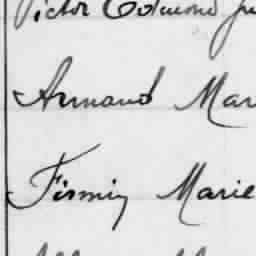 Victor Edmond
Armand Mar
Firmin Marie